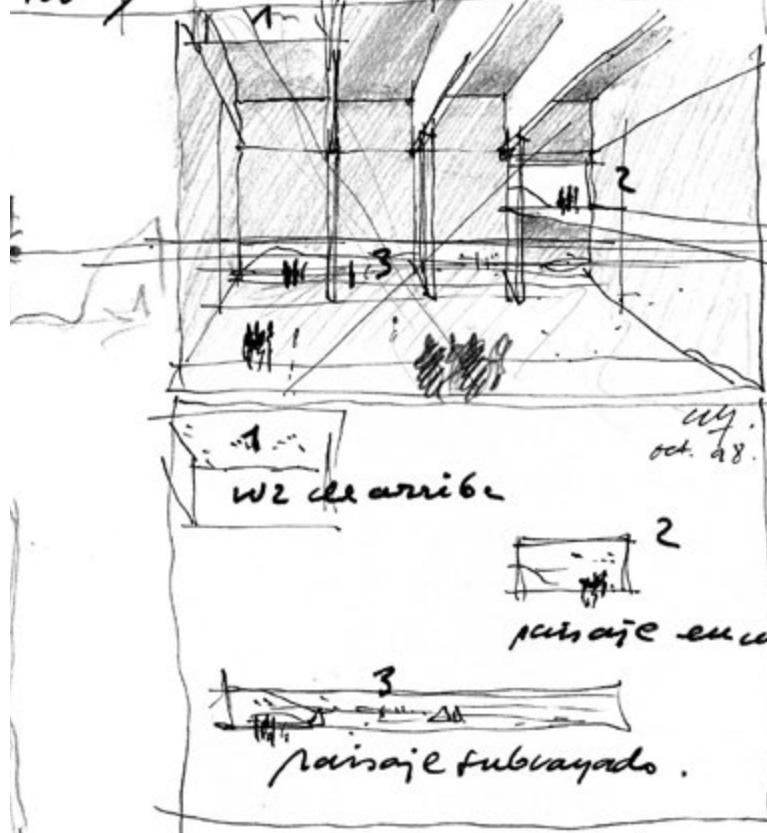 1
2
3
oct. 98.
1
luz de arriba
2
paisaje en
3
paisaje subrayado.